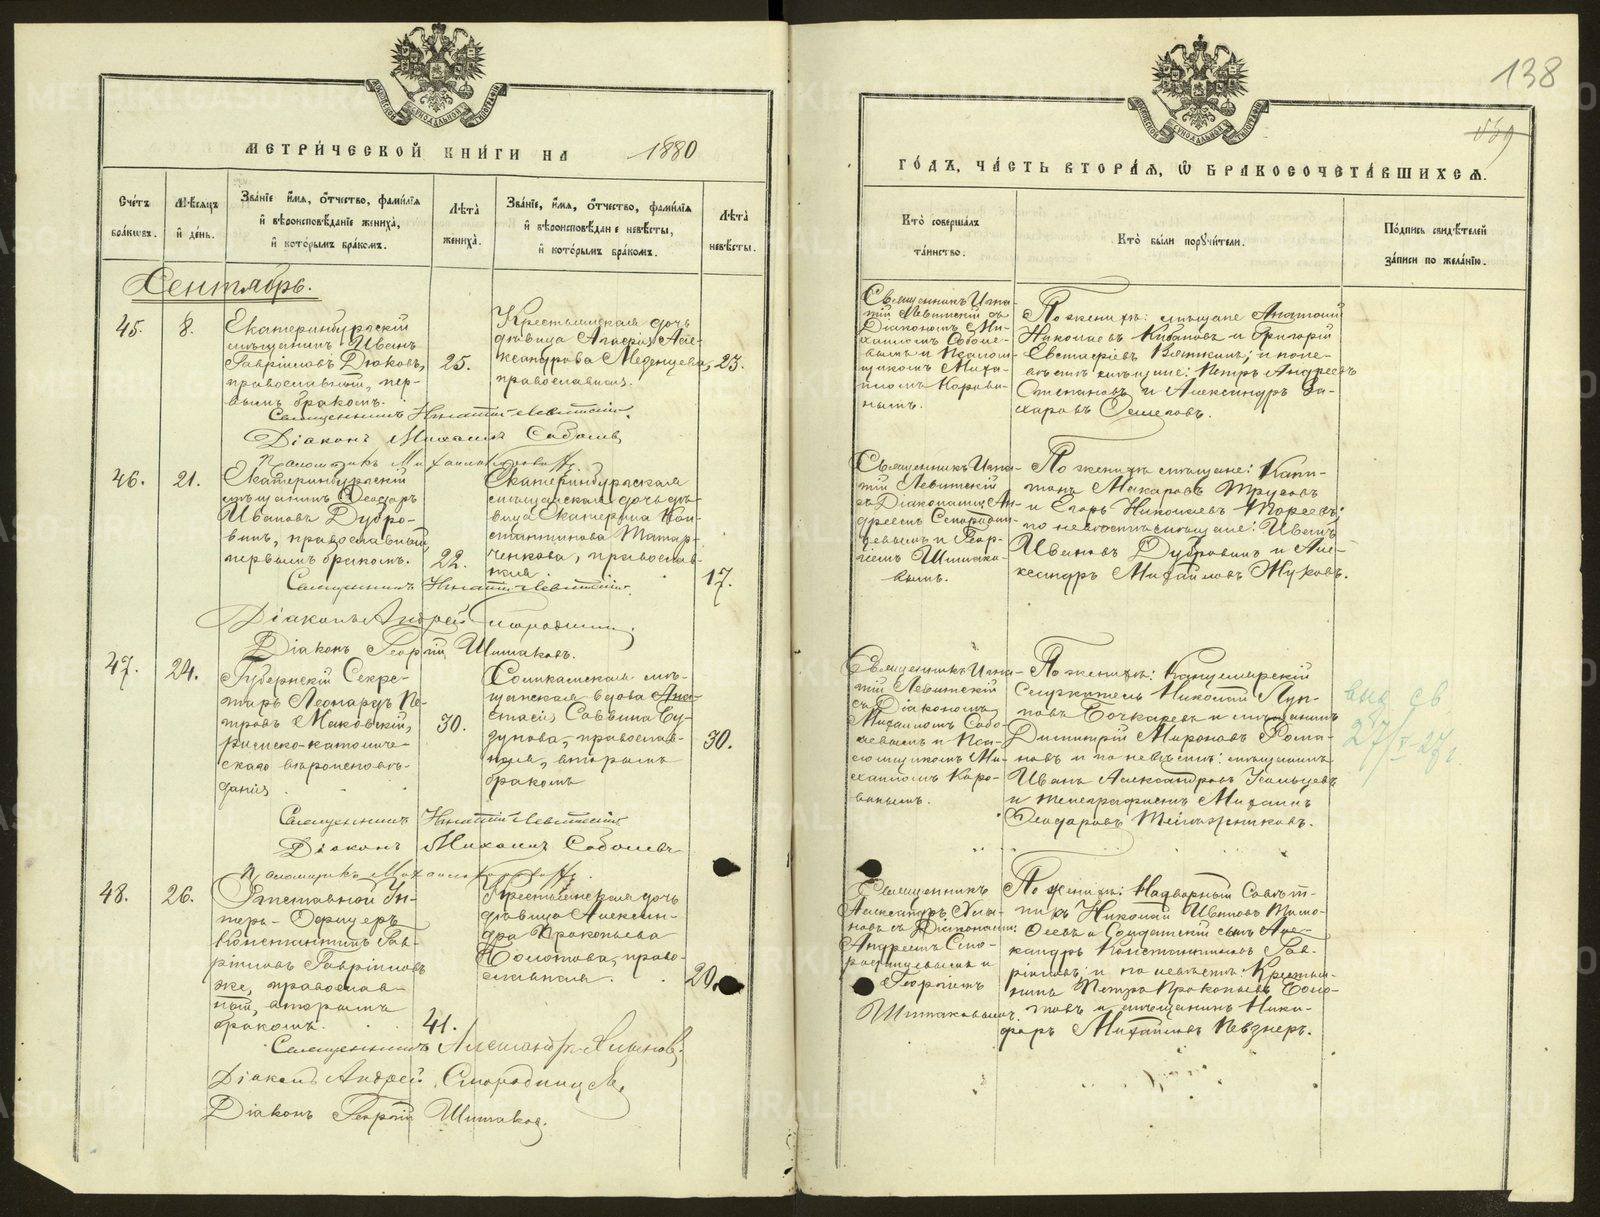 МЕТРИ́ЧЕСКОЙ КНИ́ГИ НА 1880
Сче́тъ бра́кѡвъ.
Мѣ́сяцъ и́ де́нь.
Зва́нїе и́мя, о́тчество, фами́лїя и́ вѣроисповѣ́данїе жениха̀, и́ кото́рымъ бра́комъ.
Лѣ́та жениха̀.
Зва́нїе, и́мя, о́тчество, фами́лїя и́ вѣроисповѣ́дан е невѣ́сты, и́ кото́рымъ бра́комъ.
Лѣ́та невѣ́сты.
Сентябрь.
45.
8.
Екатеринбургскій
мѣщанинъ Иванъ
Гавріиловъ Дюковъ,
православный, пер-
вымъ бракомъ.
25.
Крестьянская дочь
дѣвица Але-
ксандрова Меденцева,
православная.
23.
Священникъ Игнатій Левитскій.
Діаконъ Михаилъ Соболевъ
Псаломщикъ Михаилъ
46.
21.
Екатеринбургскій
мѣщанинъ Ѳеодоръ
Ивановъ Дубро-
винъ, православный,
первымъ бракомъ.
22.
Екатеринбургская
мѣщанская дочь дѣ-
вица Екатерина Кон-
стантинова Татар-
ченкова, православ-
ная.
17.
Священникъ Игнатій Левитскій.
Діаконъ Андрей
Діаконъ Георгій Шишаковъ.
47.
24.
Губернскій Секре-
тарь Леонардъ Пе-
тровъ Маковскій,
римско-католиче-
скаго вѣроисповѣ-
данія
30.
мѣ-
щанская вдова Ана-
стасія Саввина Бу-
дунова, православ-
ная, вторымъ
бракомъ
30.
Священникъ Игнатій Левитскій
Діаконъ Михаилъ Соболевъ
Псаломщикъ Михаилъ
48.
26.
Отставной Ун-
теръ-Офицеръ
Константинъ Гав-
ріиловъ Гавріиловъ
же, православ-
ный, вторымъ
бракомъ.
41.
Крестьянская дочь
дѣвица Алексан-
дра Прокопьева
Болотова, право-
славная.
20.
Священникъ Александръ
Діаконъ Андрей Смородинцевъ
Діаконъ Георгій Шишаковъ.
138
ГО́ДЪ, ЧА́СТЬ ВТОРА́Я, Ѡ БРАКОСОЧЕТА́ВШИХСЯ.
Кто̀ соверша́лъ та́инство.
Кто̀ бы́ли поручи́тели.
По́дпись свидѣ́телей за́писи по жела́нїю.
Священникъ Игна-
тій Левитскій съ
Діакономъ Ми-
хаиломъ Соболе-
вымъ и Псалом-
щикомъ Миха-
иломъ Корова-
нымъ.
По женихѣ: мѣщане Анатолій
Николаевъ Кибановъ и Григорій
Евстафіевъ Вяткинъ; и по не-
вѣстѣ мѣщане: Петръ Андреевъ
Степановъ и Александръ За-
харовъ
Священникъ Игна-
тій Левитскій
съ Діаконами Ан-
дреемъ Смородин-
цевымъ и Геор-
гіемъ Шишако-
вымъ.
По женихѣ мѣщане: Капи-
тонъ Макаровъ Трусовъ
и Егоръ Николаевъ
по невѣстѣ мѣщане: Иванъ
Ивановъ Дубровинъ и Але-
ксандръ Михайловъ Жуковъ.
Священникъ Игна-
тій Левитскій
съ Діакономъ
Михаиломъ Собо-
левымъ и Пса-
ломщикомъ Ми-
хаиломъ Коро-
ванымъ.
По женихѣ: Канцелярскій
Служитель Николай
Бочкаревъ и мѣщанинъ
Димитрій Мироновъ Рома-
новъ и по невѣстѣ: мѣщанинъ
Иванъ Александровъ
и телеграфистъ Михаилъ
Ѳеодоровъ
выд св
27/V-27 г
Священникъ
Александръ
новъ съ Діаконами:
Андреемъ Смо-
родинцевымъ и
Георгіемъ
Шишаковымъ.
По женихѣ: Надворный Совѣт-
никъ Николай Ивановъ
и Солдатскій сынъ Але-
ксандръ Константиновъ Гав-
ріиловъ; и по невѣстѣ: Крестья-
нинъ Петръ Прокопьевъ Боло-
товъ и мѣщанинъ Ники-
форъ Михайловъ Певзнеръ.